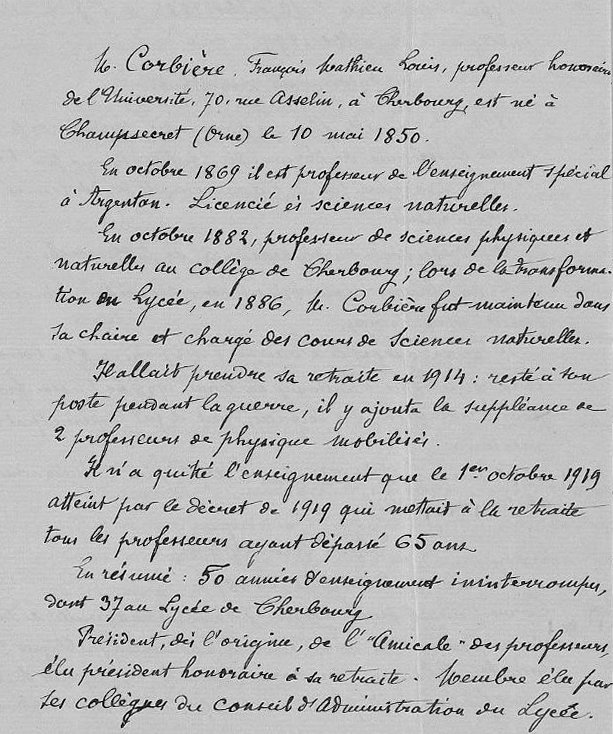 M. Corbière, François Mathieu Louis, professeur honoraire
de l'Université, 70, rue Asselin, à Cherbourg, est né à
Champsecret (Orne) le 10 mai 1850.
En octobre 1869 il est professeur de l'enseignement spécial
à Argentan. Licencié ès sciences naturelles.
En octobre 1882, professeur de sciences physiques et
naturelles au collège de Cherbourg ; lors de la transforma-
tion en Lycée, en 1886, M. Corbière fut maintenu dans
sa chaire et chargé des cours de Sciences naturelles.
Il allait prendre sa retraite en 1914 : resté à son
poste pendant la guerre, il y ajouta la suppléance de
2 professeurs de physique mobilisés.
Il n'a quitté l'enseignement que le 1er octobre 1919
atteint par le décret de 1919 qui mettait à la retraite
tous les professeurs ayant dépassé 65 ans.
En résumé : 50 années d'enseignement ininterrompu,
dont 37 au Lycée de Cherbourg
Président, dès l'origine, de l'"Amicale" des professeurs,
élu président honoraire à sa retraite. Membre élu par
ses collègues du Conseil d'Administration du Lycée.